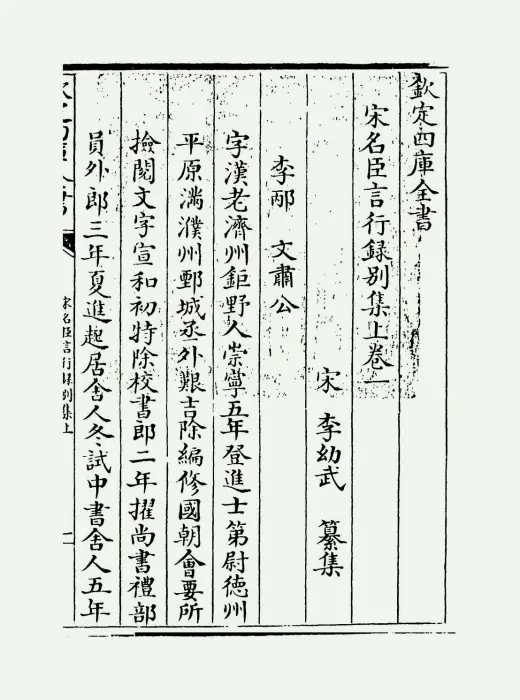 欽定四庫全書
宋名臣言行録别集上卷一
宋 李幼武 纂集
李邴 文肅公
字漢老濟州鉅野人崇寧五年登進士第尉徳州
平原滿濮州鄄城丞外艱吉除編修國朝會要所
撿閲文字宣和初特除校書郎二年擢尚書禮部
員外郎三年夏進起居舍人冬試中書舍人五年
宋名臣言行録别集上